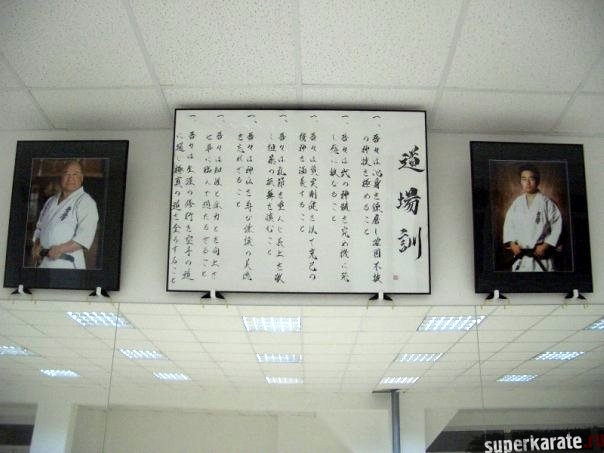 道場訓
一、吾々は心身を錬磨し確固不抜
の心技を極めること
一、吾々は武の神髄を究め機に発
し感に敏なること
一、吾々は質実剛健を以て克己の
精神を涵養すること
一、吾々は礼節を重んじ長上を敬
し粗暴の振舞を慎むこと
一、吾々は神仏を尊び謙譲の美徳
を忘れざること
一、吾々は知性と体力とを向上さ
せ事に臨んで過たざること
一、吾々は生涯の修行を空手の道
に通じ極真の道を全うすること
superkarate.ru